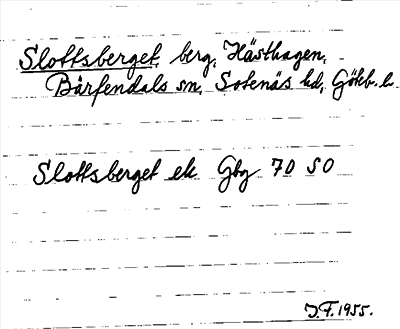 Slottsberget, berg, Hästhagen,
Bärfendals sn, Sotenäs hd, Göteb. l.
Slottsberget ek Gbg 70 SO
J.F. 1955.